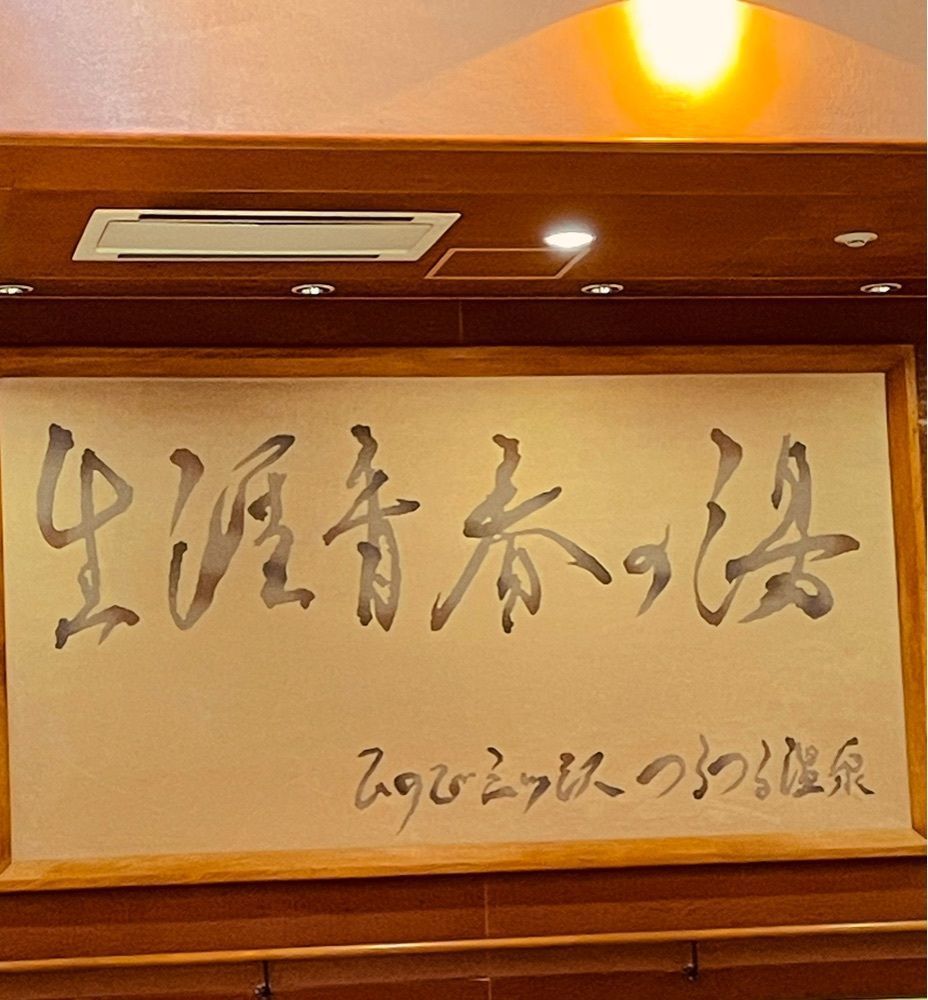 生涯青春の湯
ひので三ツ沢 つるつる温泉